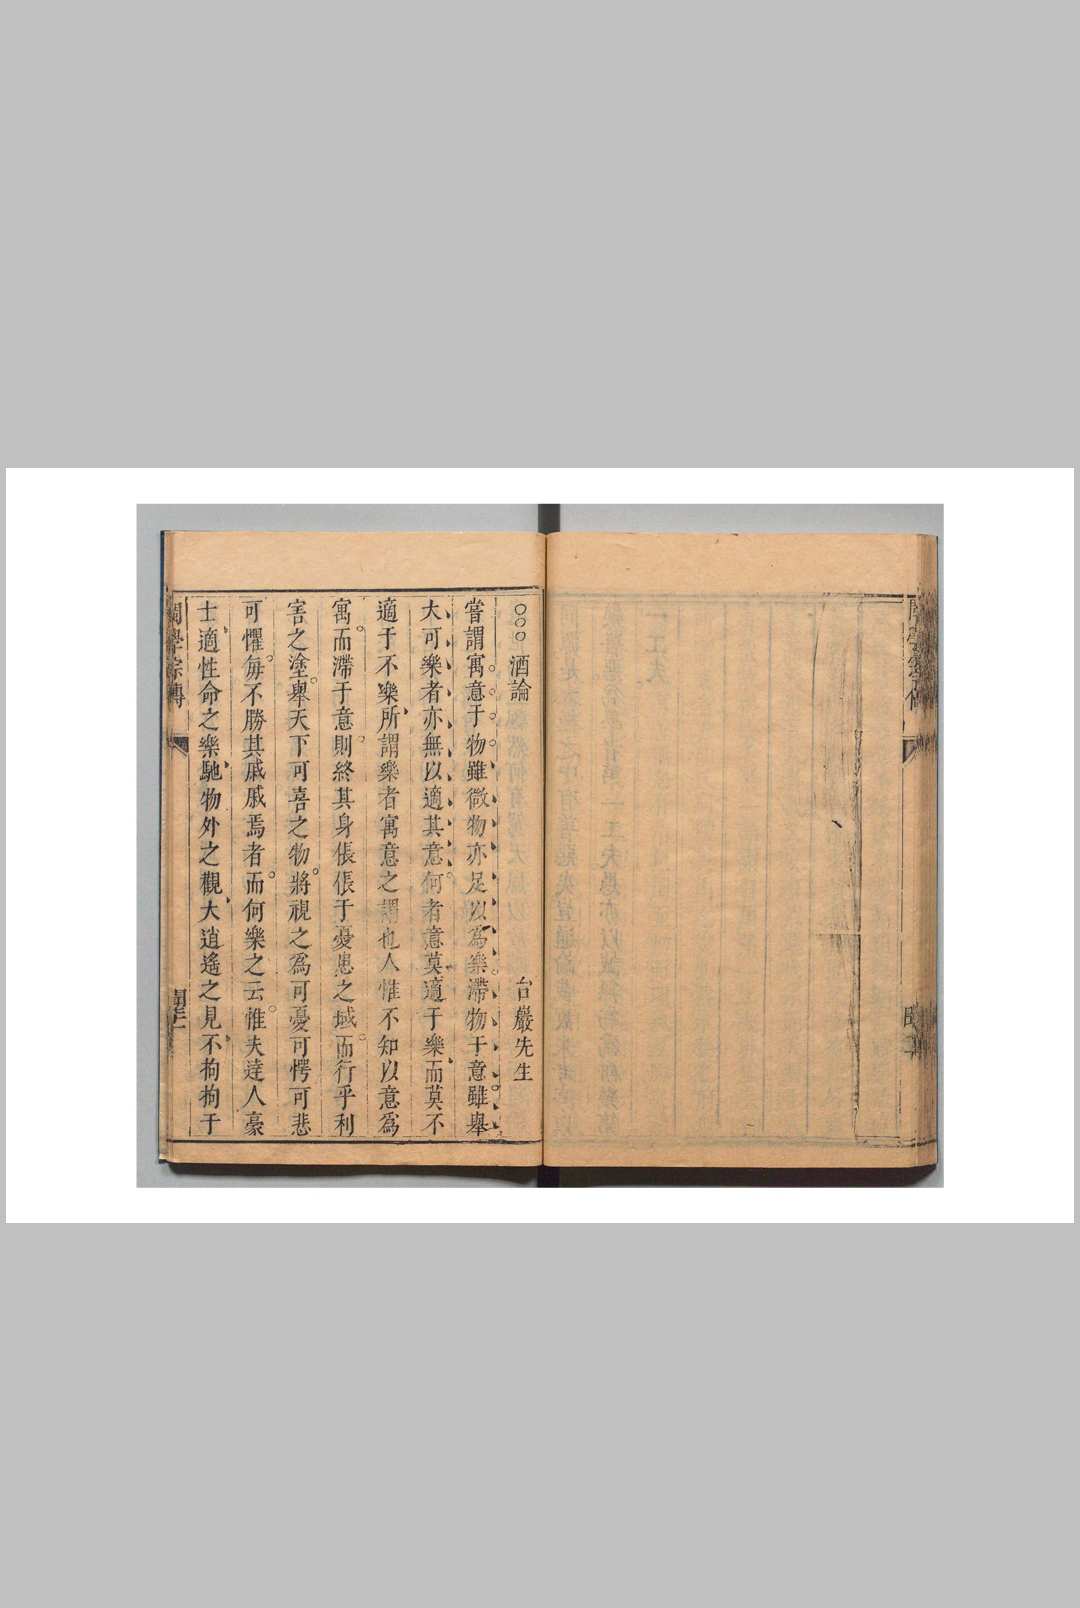 ○○○酒論 台嚴先生
嘗謂寓意于物雖微物亦足以為樂滯物于意雖舉
大可樂者亦無以適其意何者意莫適于樂而莫不
適于不樂所謂樂者寓意之謂也人惟不知以意爲
寓而滯于意則終其身倀倀于憂患之域而行乎利
害之塗舉天下可喜之物將視之爲可憂可愕可悲
可懼每不勝其戚戚焉者而何樂之云惟夫達人豪
士適性命之樂馳物外之觀大逍遙之見不拘拘于